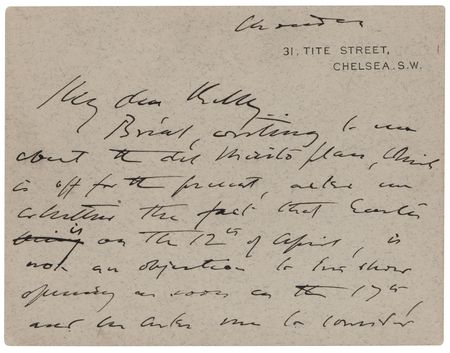 Monday
31, TITE STREET,
CHELSEA. S.W.
My dear
writing to me
about the del plan, which
is off for the present, asks me
whether the fact that Easter
is on the 12th of April, is
not an objection to his show
opening as soon as the 17th,
and he asks me to consider